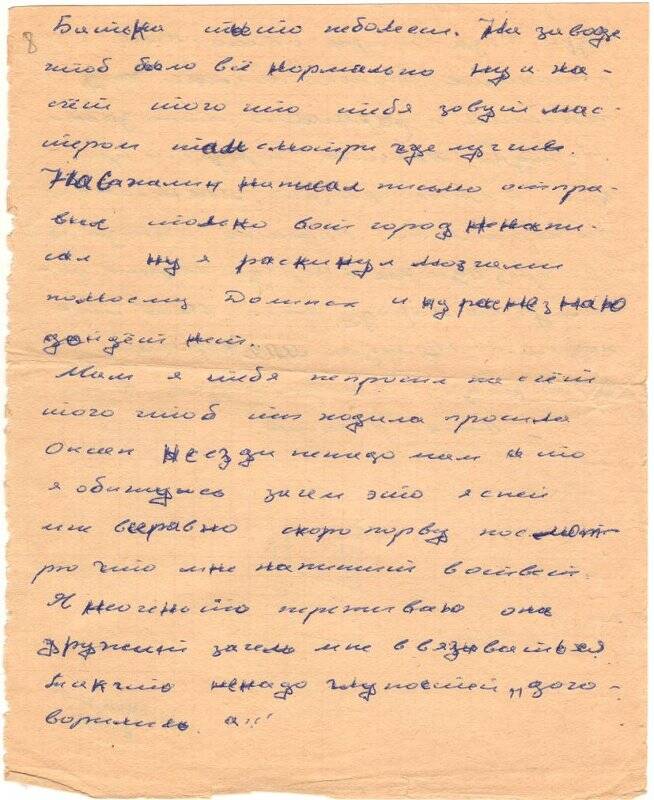 8
Батька то неболеет. На заводе
чтоб было всё нормально ну и на-
счёт того что тебя зовут мас-
тером там смотри где лучше.
На Сахалин написал письмо отпра-
вил только вот город ненапи-
сал ну я раскинул мозгами
помоему Долинск и ну ра незнаю
дойдёт нет..
Мам я тебя непросил насчёт
того чтоб ты ходила просила
Оксан неезди ненадо мам а то
я обижусь зачем это я сней
мне всеравно скоро порву посмот-
рю что мне напишит вответ.
Я неоченьто переживаю она
дружит зачем мне ввязываться
так что ненадо глупостей „дого-
ворились. а!!!